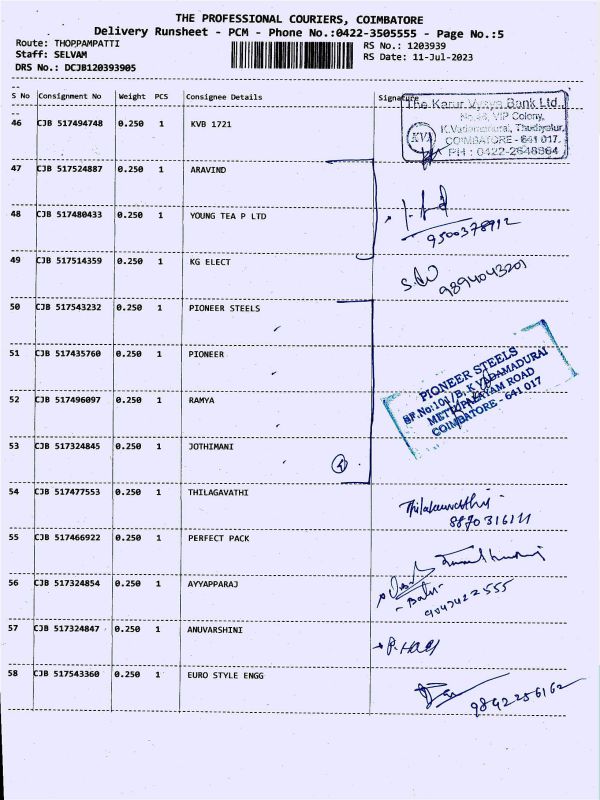 THE PROFESSIONAL COURIERS, COIMBATORE
Delivery Runsheet - PCM - Phone No.:0422-3505555 - Page No.:5
Route: THOPPAMPATTI RS No.: 1203939
Staff: SELVAM RS Date: 11-Jul-2023
DRS No.: DCJB120393905
S No Consignment No Weight PCS Consignee Details Signature
The Karur Vysya Bank Ltd.,
No.48, VIP Colony,
K.Vadamadurai, Thudiyalur,
COIMBATORE - 641 017.
PH : 0422-2648364
KVB
46 CJB 517494748 0.250 1 KVB 1721
47 CJB 517524887 0.250 1 ARAVIND
48 CJB 517480433 0.250 1 YOUNG TEA P LTD
9500378912
49 CJB 517514359 0.250 1 KG ELECT
9894043201
50 CJB 517543232 0.250 1 PIONEER STEELS
51 CJB 517435760 0.250 1 PIONEER
PIONEER STEELS
SF.No:101/B, K.VADAMADURAI
METTUPALAYAM ROAD
COIMBATORE - 641 017
52 CJB 517496097 0.250 1 RAMYA
53 CJB 517324845 0.250 1 JOTHIMANI
4
54 CJB 517477553 0.250 1 THILAGAVATHI
8870316111
55 CJB 517466922 0.250 1 PERFECT PACK
56 CJB 517324854 0.250 1 AYYAPPARAJ
57 CJB 517324847 0.250 1 ANUVARSHINI
58 CJB 517543360 0.250 1 EURO STYLE ENGG
9842256162